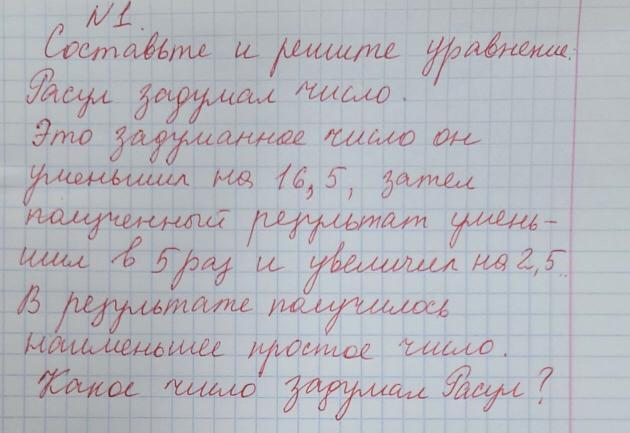 N 1.
Составьте и решите уравнение.
Расул задумал число.
Это задуманное число он
уменьшил на 16,5, затем
полученный результат умень-
шил в 5 раз и увеличил на 2,5.
В результате получилось
наименьшее простое число.
Какое число задумал Расул?